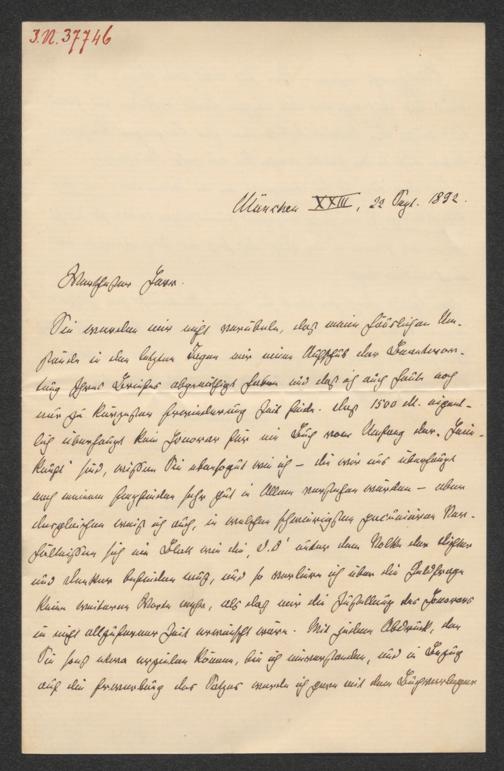 J.N. 37746
München XXIII, 22 Sept. 1892.
Werthester Herr.
Sie werden mir nicht verübeln, daß meine häuslichen Um-
stände in den letzten Tagen mir einen Aufschub der Beantwor-
tung Ihres Briefes abgenöthigt haben und daß ich auch heute noch
nur zu kürzester Erwiderung Zeit finde. Daß 1500 M. eigent-
lich überhaupt kein Honorar für ein Buch vom Umfang der
sind, wissen Sie ebensogut wie ich – die wir uns überhaupt
nach meinem Empfinden sehr gut in Allem verstehen würden – aber
desgleichen weiß ich auch, in welchen schwierigsten pecuniären Ver-
hältnissen sich ein Blatt wie die unter dem Volke der Dichter
und Denker befinden muß, und so verliere ich über die Geldfrage
kein weiteres Wort mehr, als daß mir die Zustellung des Honorars
in nicht allzuferner Zeit erwünscht wäre. Mit jedem Abdruck, den
Sie sonst etwa erzielen können, bin ich einverstanden, und in Bezug
auf die Erwerbung des Satzes werde ich gern mit dem Buchverleger